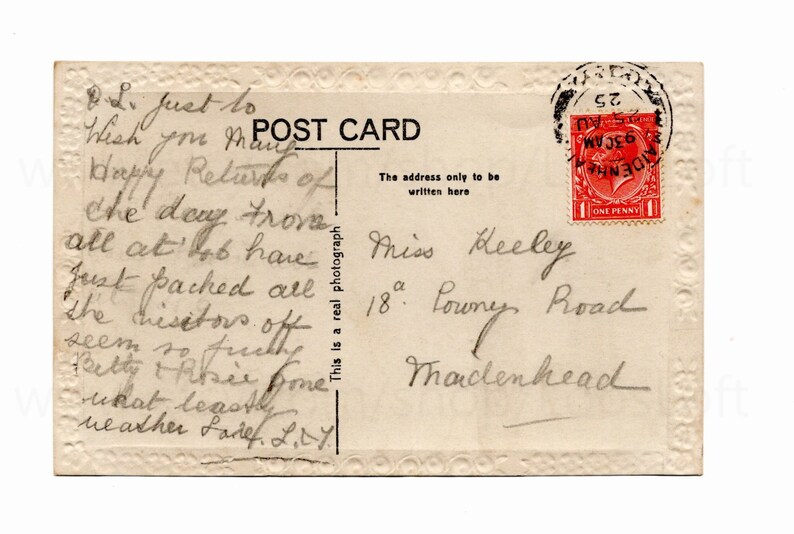 D. L. Just to
Wish you Many
Happy Returns of
the day From
all at 46 have
Just packed all
the visitors off
seem so funny
Betty & Rosie gone
what beastly
weather Love L.
POST CARD
The address only to be
written here
This is a real photograph
Miss Keeley
18a Lowny Road
Maidenhead
MAIDENHEAD
930AM
AU
25
ONE PENNY
1 1